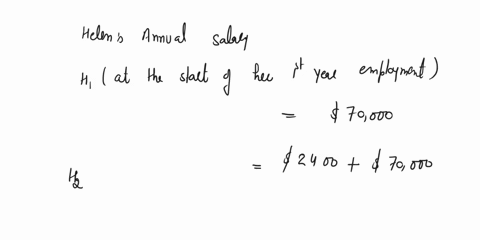 Helen's Annual Salary
H₁ (at the start of her 1st year employment)
= $70,000
H₂ = $2400 + $70,000